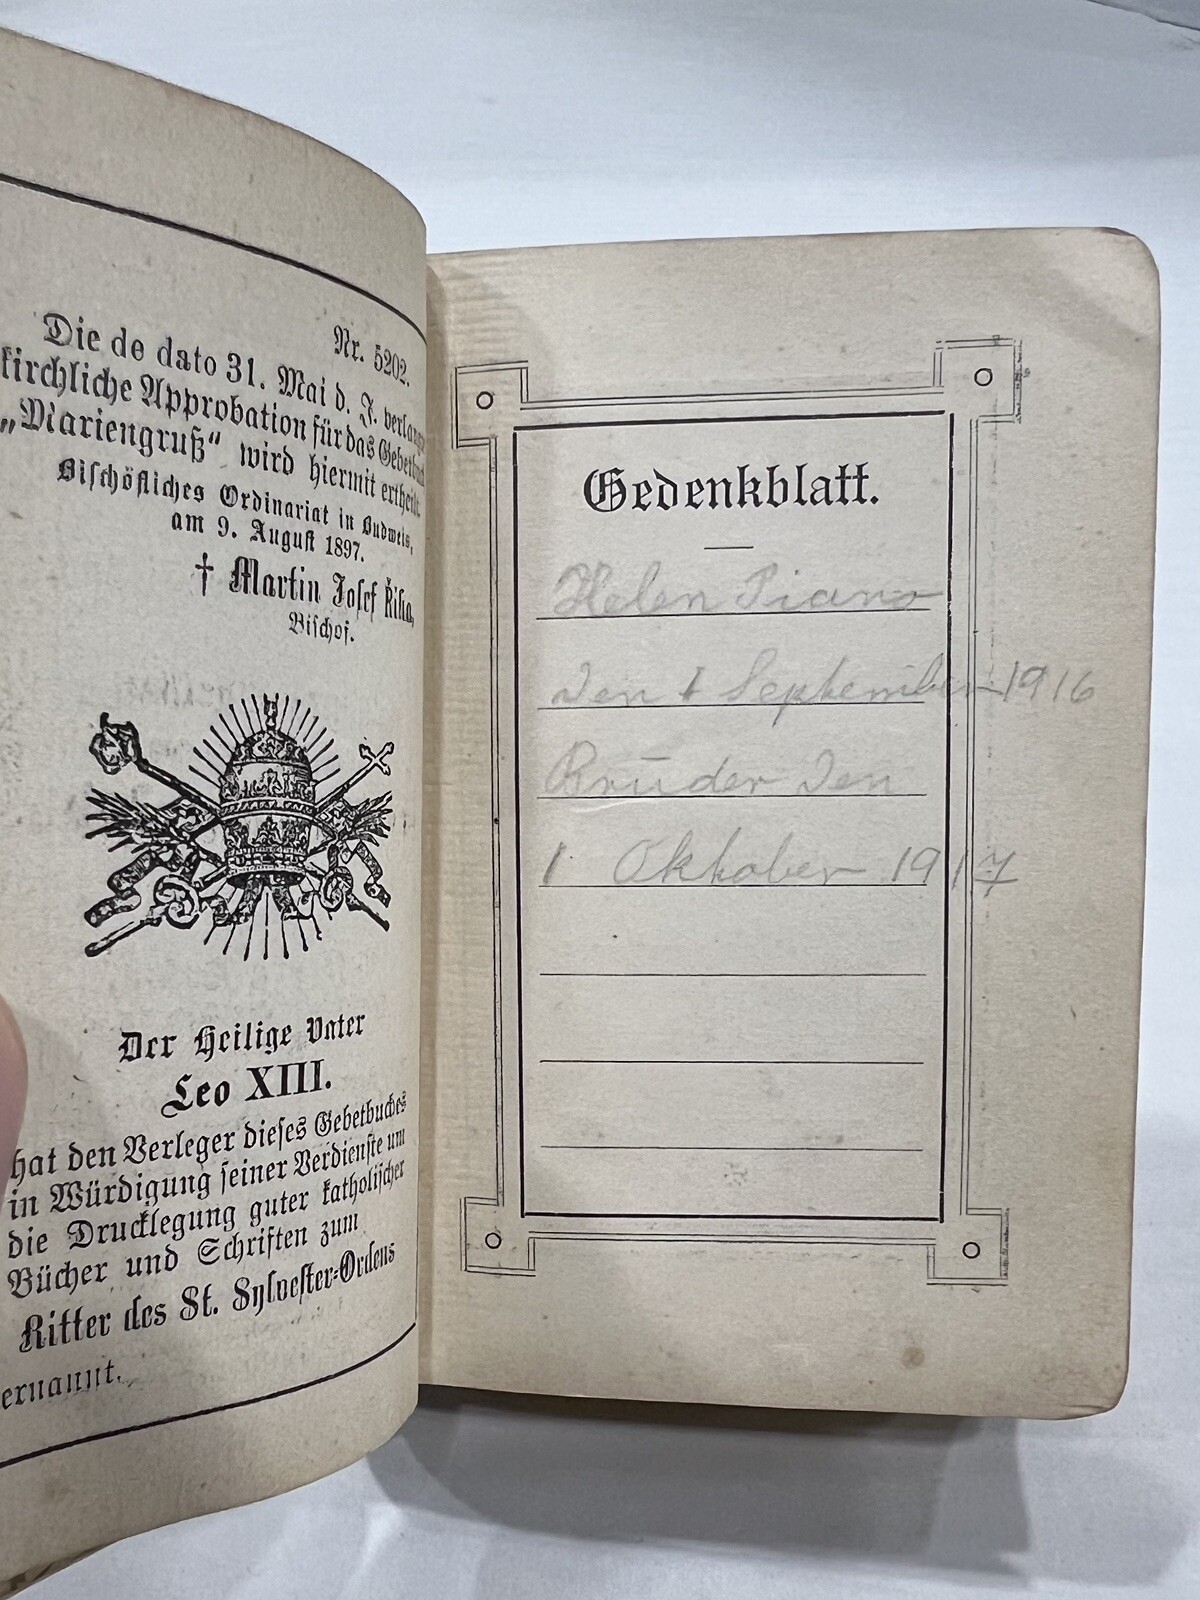 Nr. 5202.
Die de dato 31. Mai d. J.
kirchliche Approbation für das
„Mariengruß“ wird hiermit
Bischöfliches Ordinariat in Budweis,
am 9. August 1897.
† Martin Josef Říha,
Bischof.
Der Heilige Vater
Leo XIII.
hat den Verleger dieses Gebetbuches
in Würdigung seiner Verdienste um
die Drucklegung guter katholischer
Bücher und Schriften zum
Ritter des St. Sylvester-Ordens
ernannt.
Gedenkblatt.
Helen Piano
den 1 September 1916
Brūder den
1 Oktober 1917